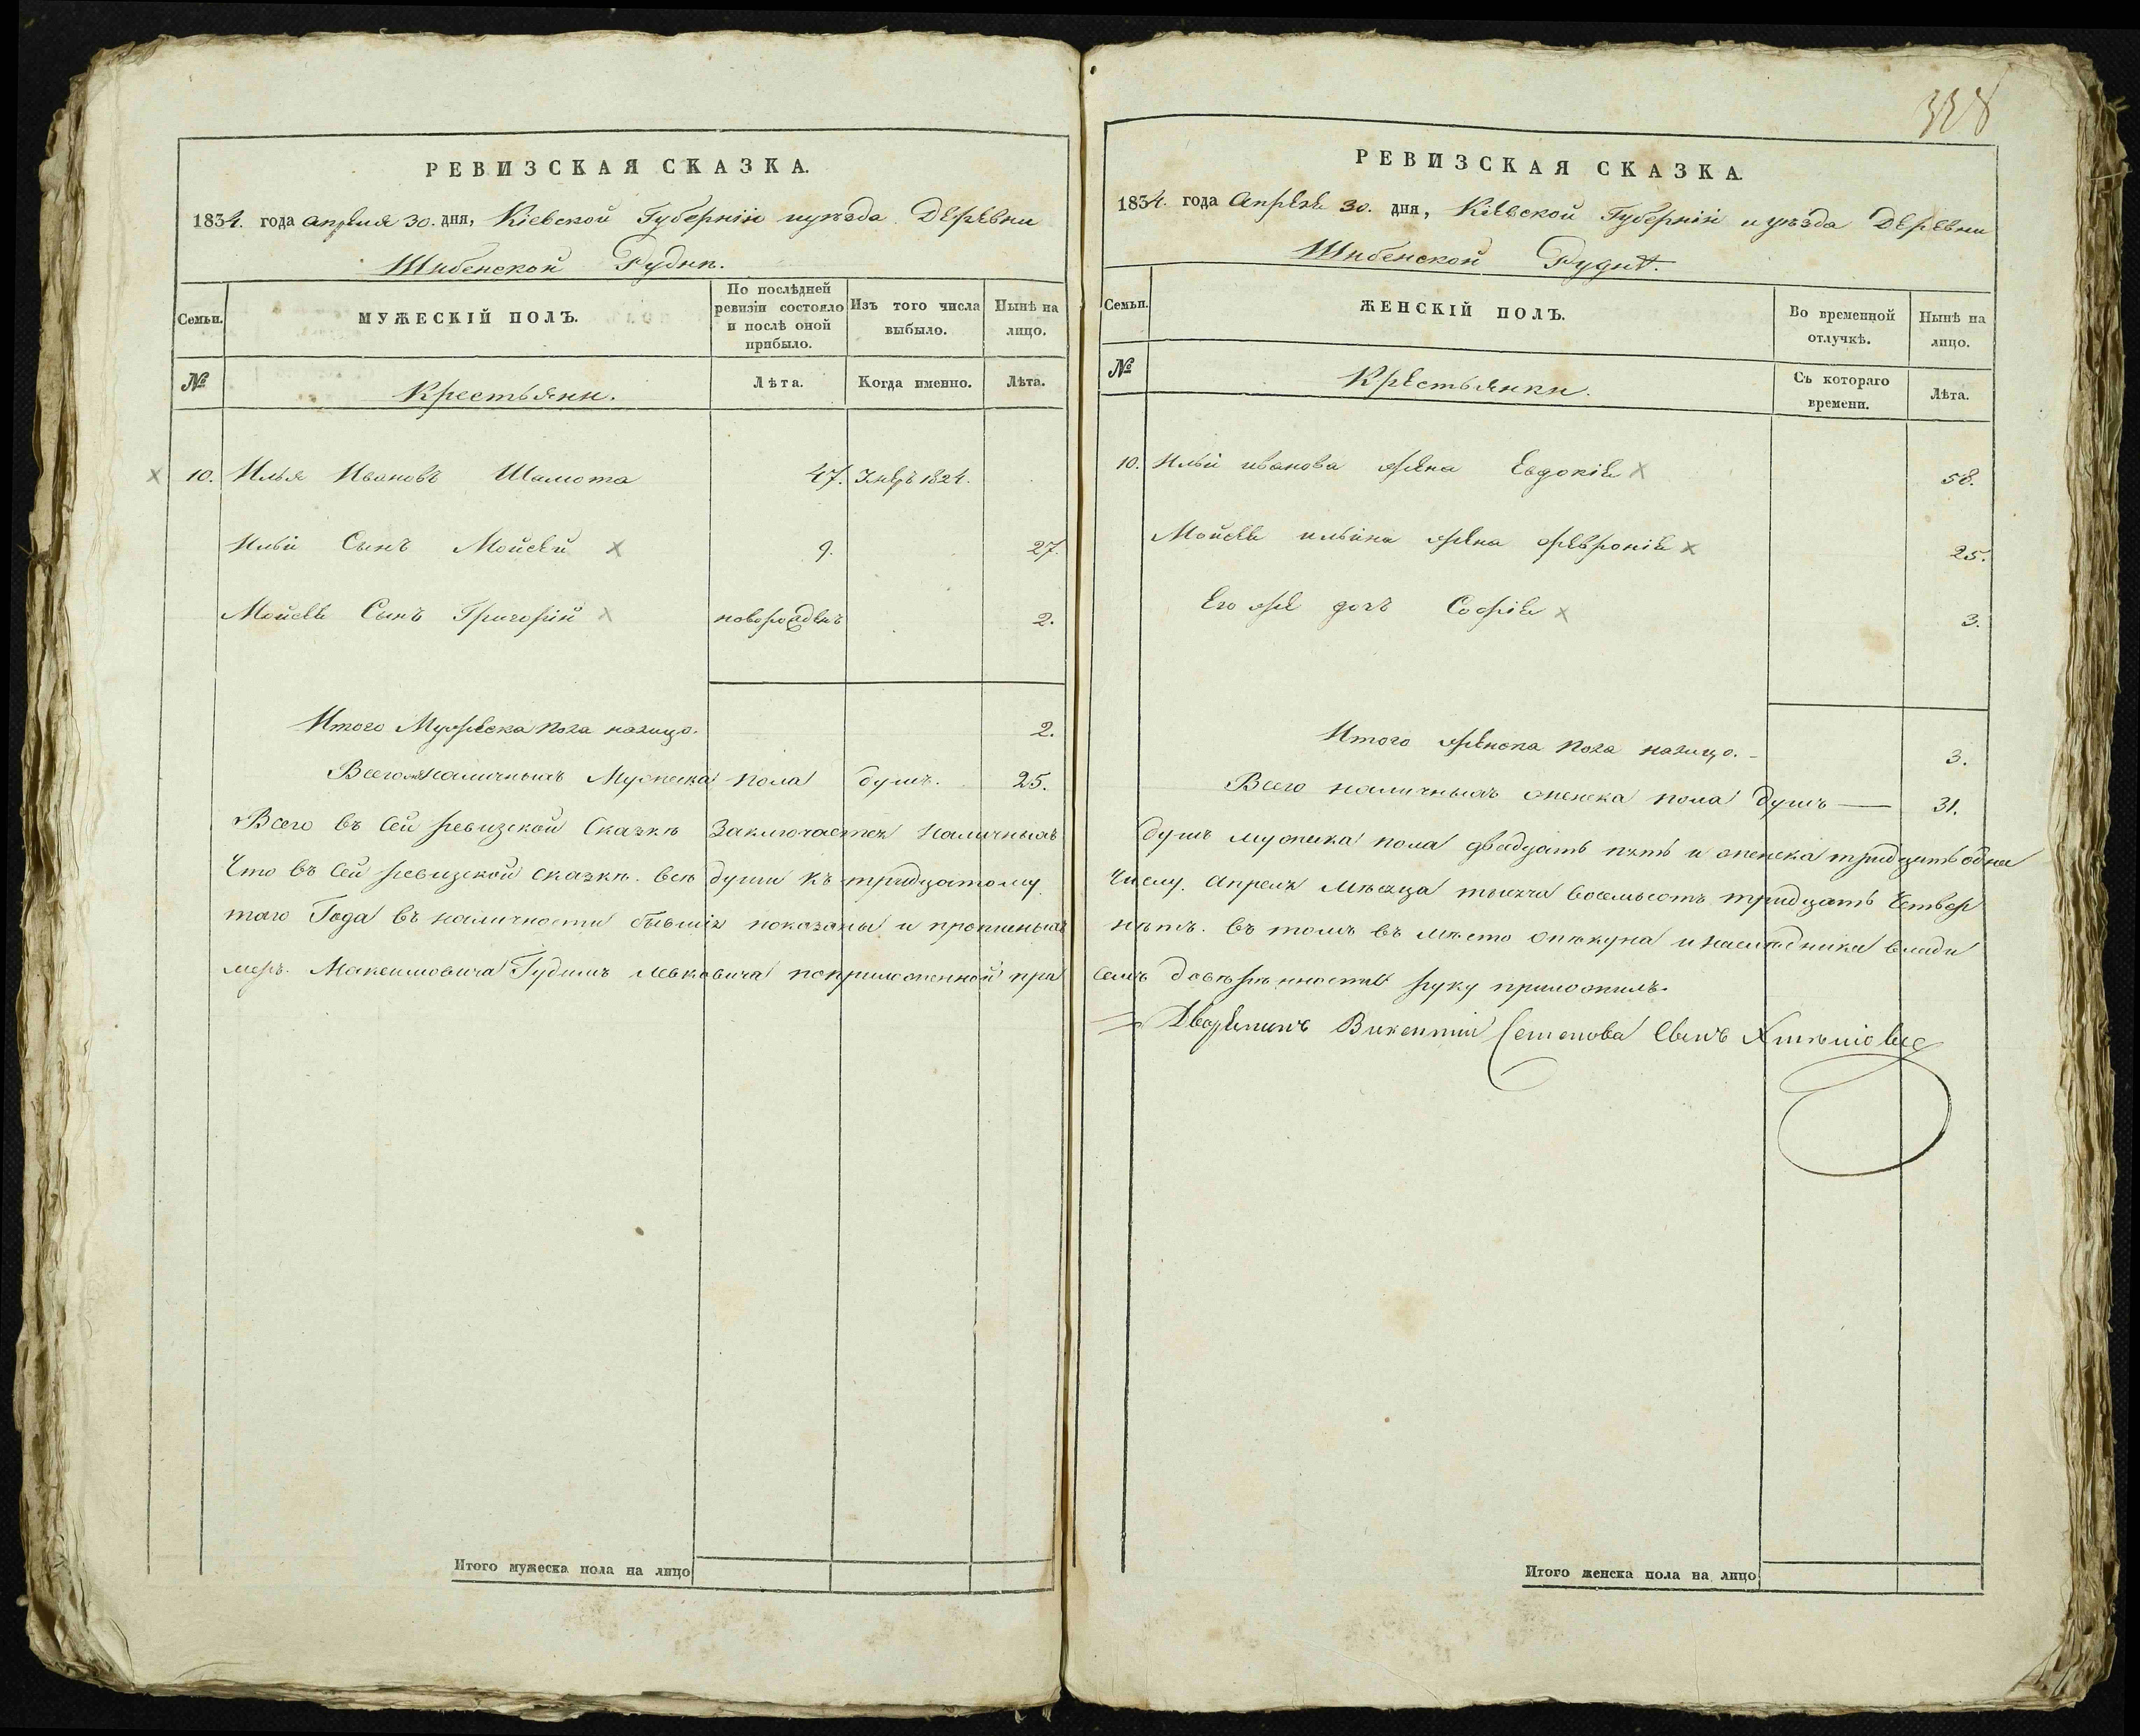 328
РЕВИЗСКАЯ СКАЗКА.
1834. года апреля 30. дня, Кіевской Губерніи и уѣзда Деревни
Шибенской Рудни.
Семьи.
МУЖЕСКІЙ ПОЛЪ.
По послѣдней ревизіи состояло и послѣ оной прибыло.
Изъ того числа выбыло.
Нынѣ на лицо.
№
Крестьяни.
Лѣта.
Когда именно.
Лѣта.
10. Илья Ивановъ Шамота 47. 1824.
Ильи Сынъ Мойсей 9. 27.
Мойсея Сынъ Григорій новорожденъ 2.
Итого Мужеска пола налицо. 2.
Всего наличныхъ Мужеска пола душъ. 25.
Всего въ сей ревизской сказкѣ заключается наличныхъ
Что въ сей ревизской сказкѣ всѣ души къ тридцатому
таго Года въ наличности бывшія показаны и
меръ Максимовича Гудимъ Левковича
Итого мужеска пола на лицо
РЕВИЗСКАЯ СКАЗКА
1834. года Апреля 30. дня, Кіевской Губерніи и уѣзда Деревни
Шибенской Рудни.
Семьи.
ЖЕНСКІЙ ПОЛЪ.
Во временной отлучкѣ.
Нынѣ на лицо.
№
Крестьянки.
Съ котораго времени.
Лѣта.
10. Ильи иванова жена Евдокія 58.
Мойсея ильина жена Февронія 25.
Его же дочь Софія 3.
Итого женска пола налицо. 3.
Всего наличныхъ женска пола душъ — 31.
душъ мужеска пола двадцать пять и женска тридцать одна
числу. Апреля мѣсяца тысяча восемьсотъ тридцать четвер
нѣтъ. въ томъ въ мѣсто опѣкуна и наследника Влади
семъ довѣренности руку приложилъ.
Дворянинъ Викентій Семенова Сынъ
Итого женска пола на лицо